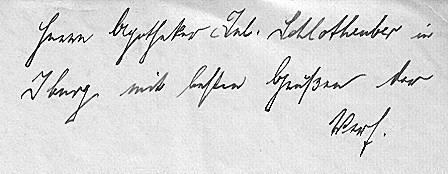 Herrn Apotheker Jul. Schlotheuber in
Iburg mit besten Grüßen der
Verf.